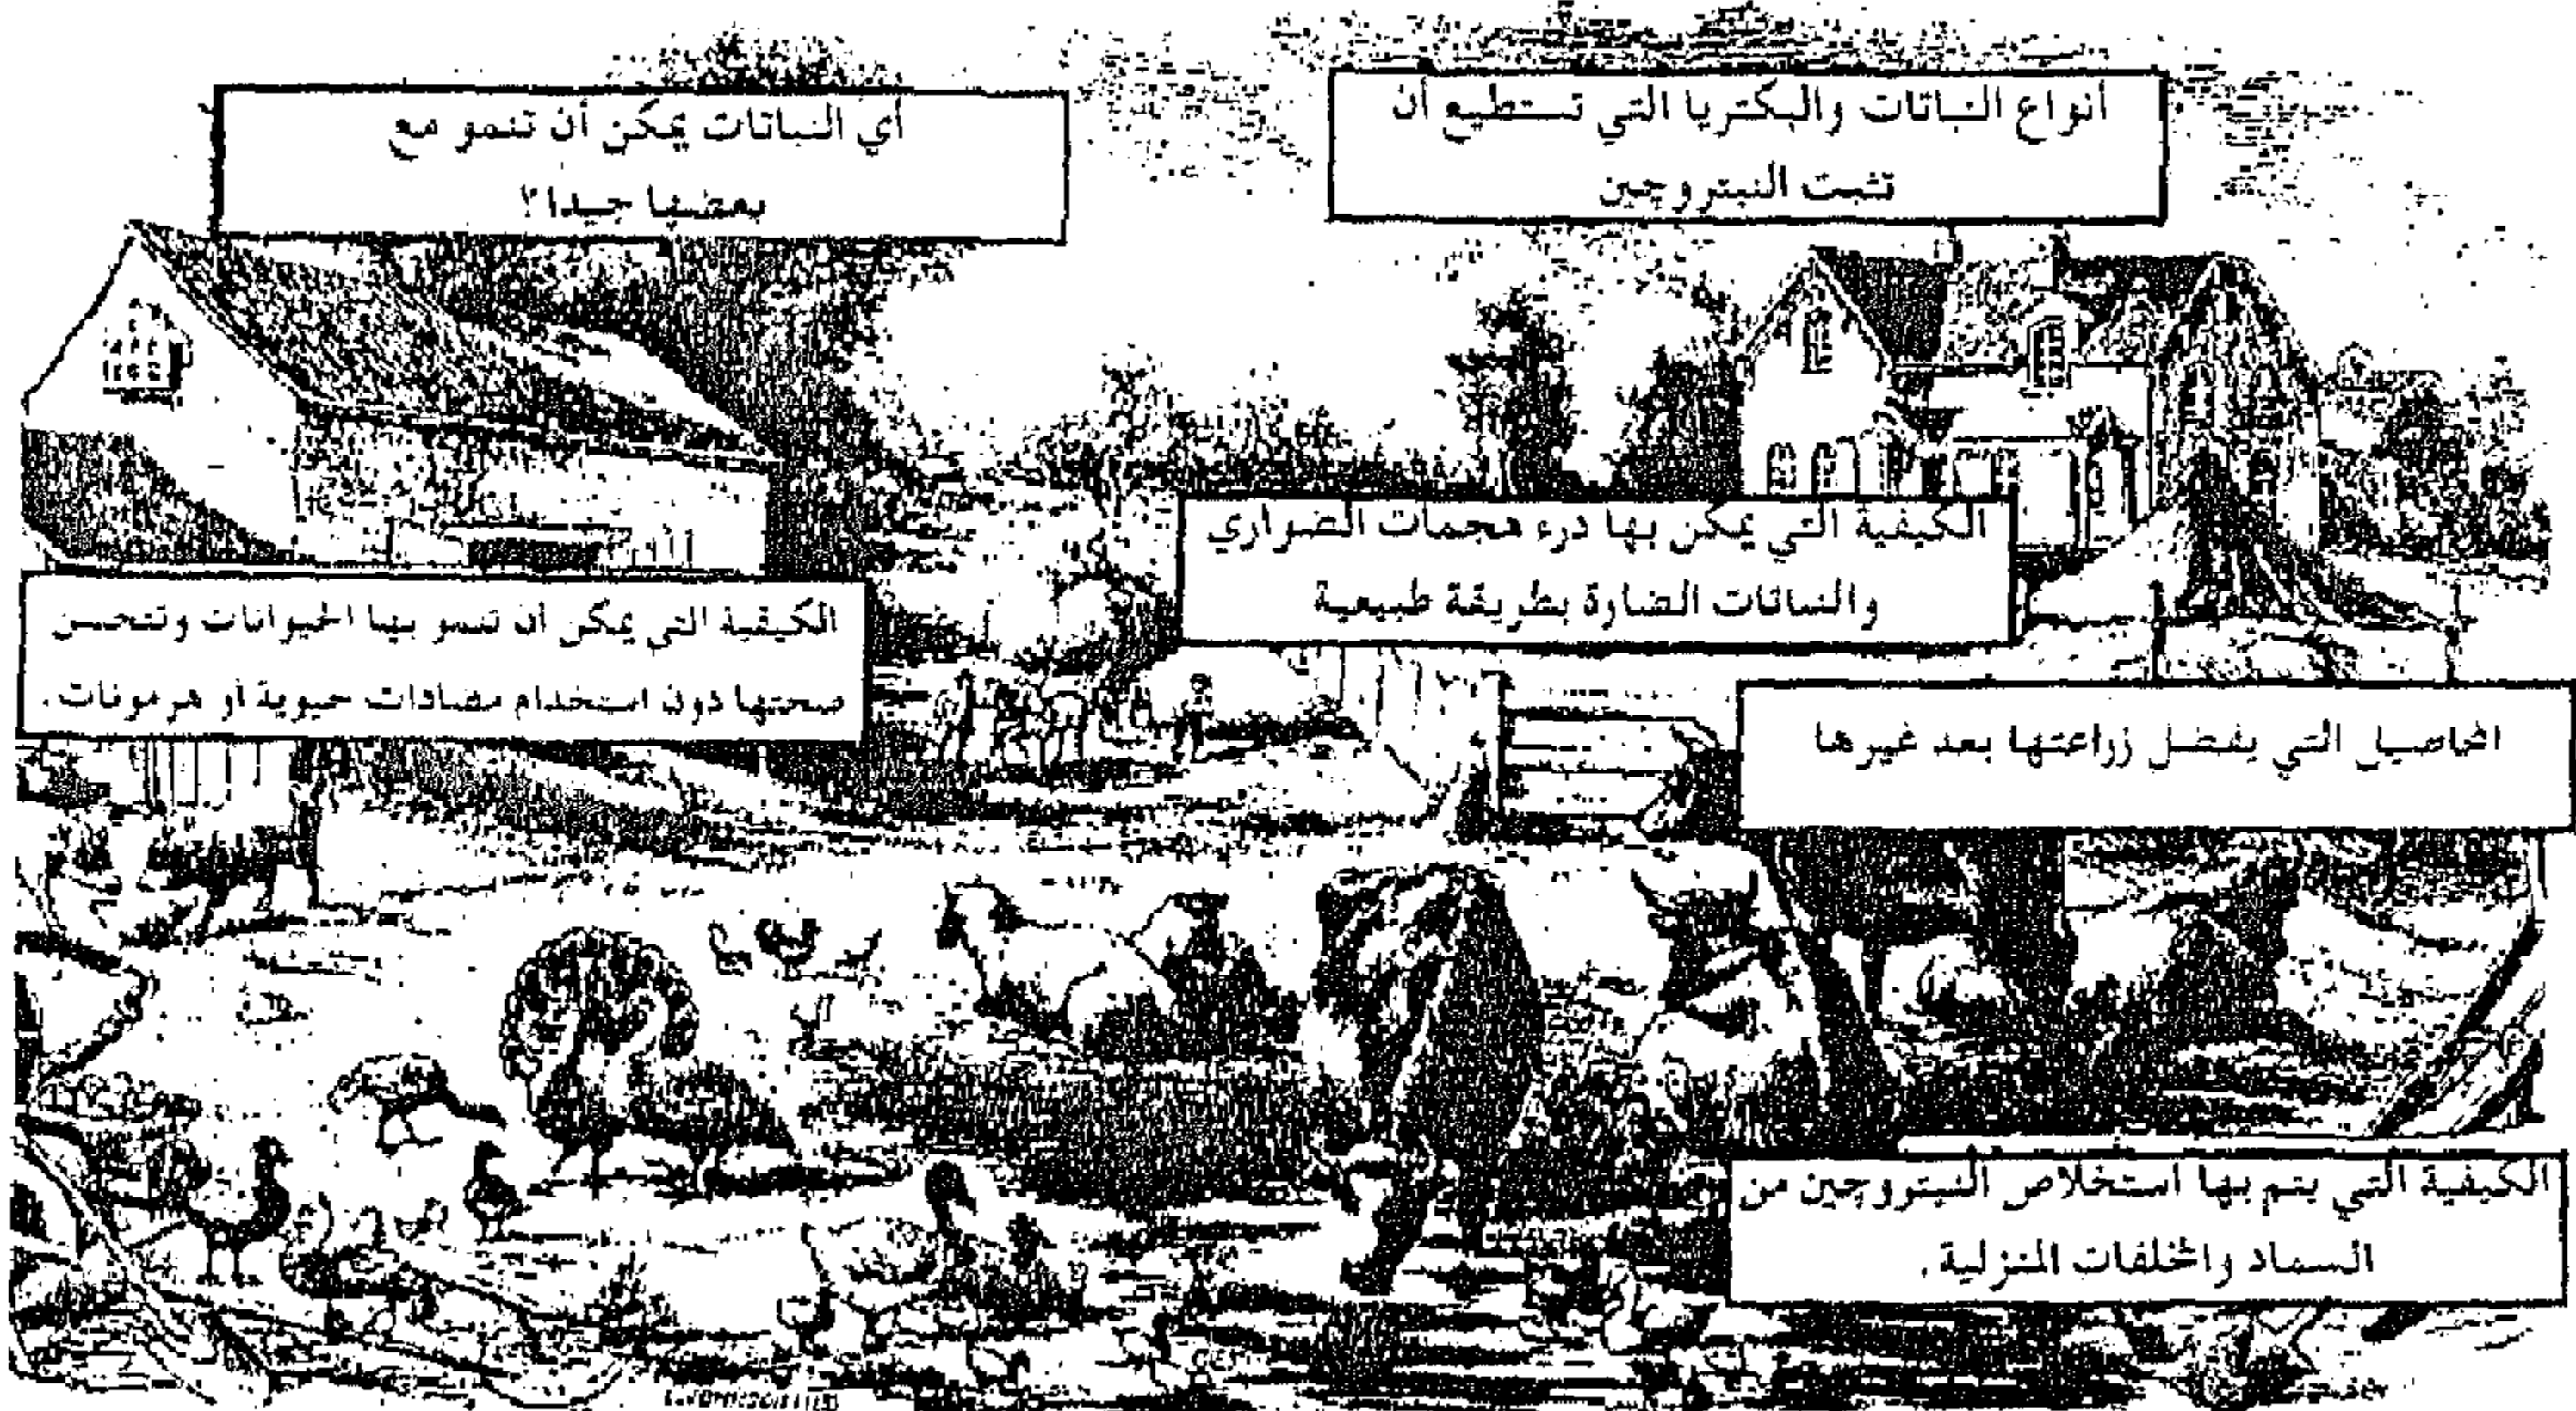 أنواع النباتات والبكتريا التي تستطيع أن
تثبت النيتروجين
أي النباتات يمكن أن تنمو مع
بعضها جيدا؟
الكيفية التي يمكن بها درء هجمات الضواري
والنباتات الضارة بطريقة طبيعية
الكيفية التي يمكن أن تنمو بها الحيوانات وتتحسن
صحتها دون استخدام مضادات حيوية أو هرمونات .
المحاصيل التي يفضل زراعتها بعد غيرها
الكيفية التي يتم بها استخلاص النيتروجين من
السماد والمخلفات المنزلية .